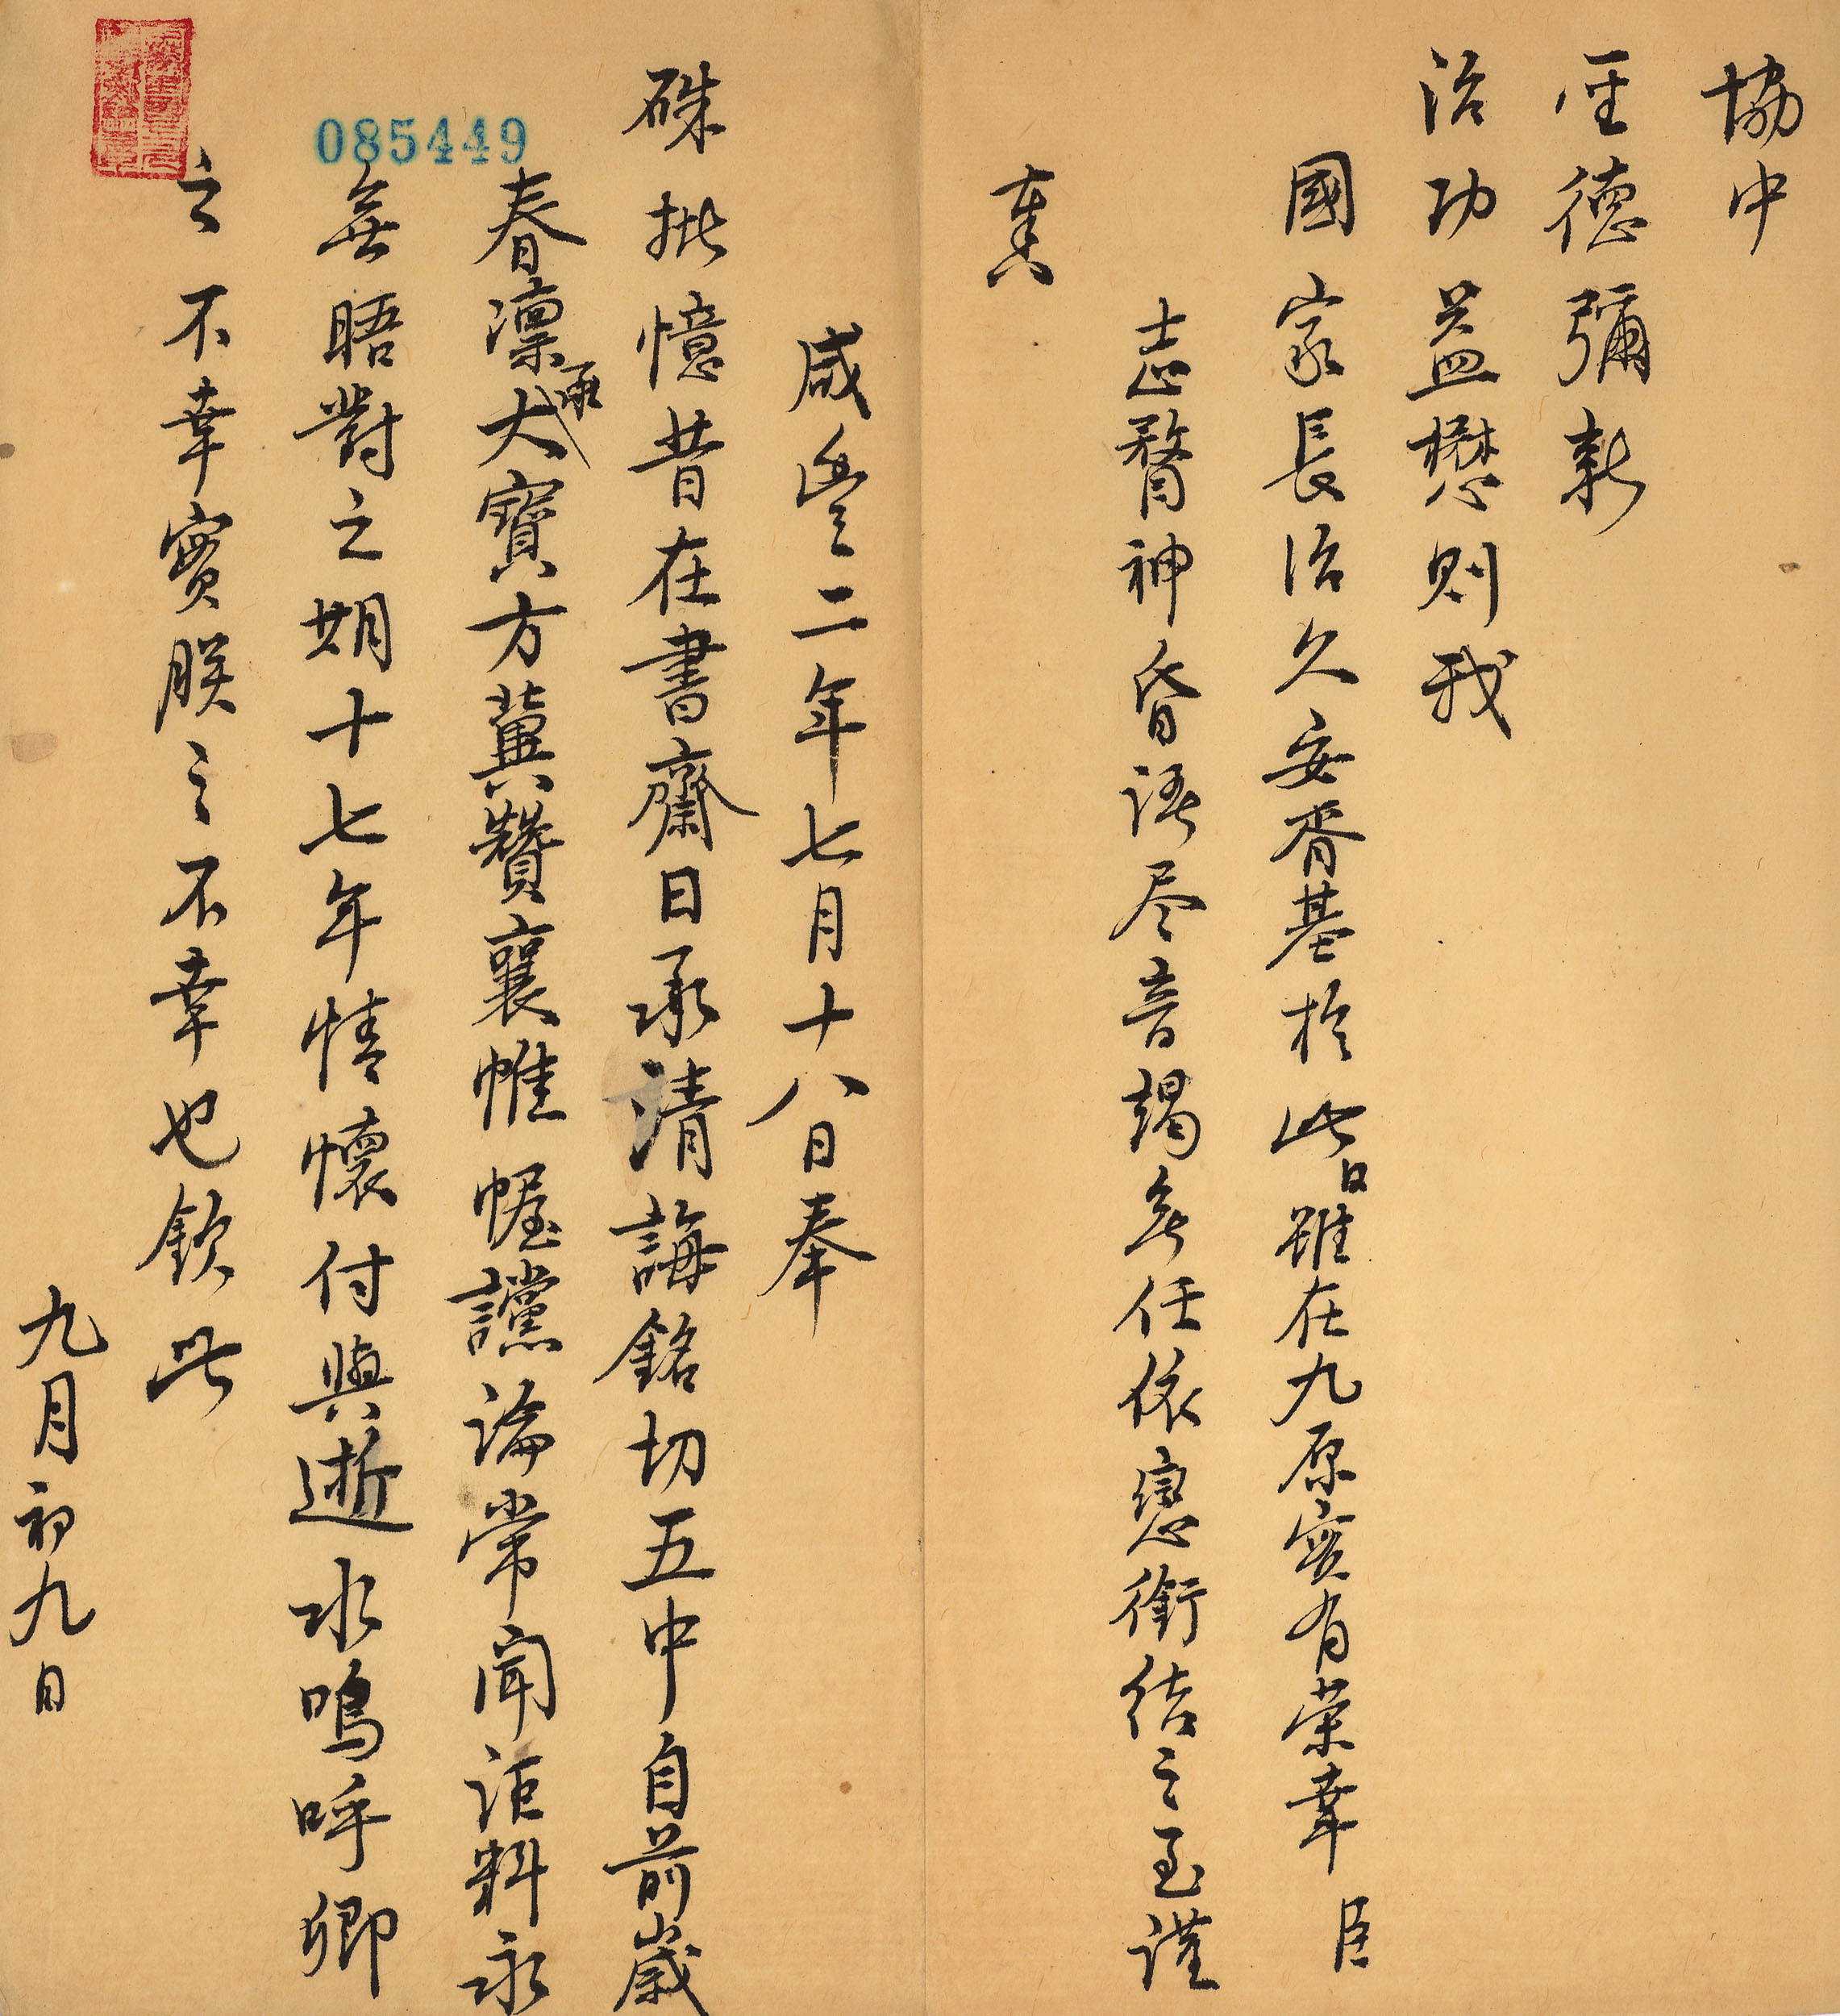 協中
聖德彌新
治功益懋則我
國家長治久安胥基於此日雖在九原實有荣幸臣
志瞀神昏語尽音竭無任依戀銜结之至謹
奏
咸豐二年七月十八日奉
硃批憶昔在書齋日承清誨銘切五中自前歲
春凛承大寶方冀贊襄帷幄讜論常聞詎料永
無晤對之期十七年情懷付與逝水嗚呼卿
之不幸實朕之不幸也欽此
九月初九日
085449